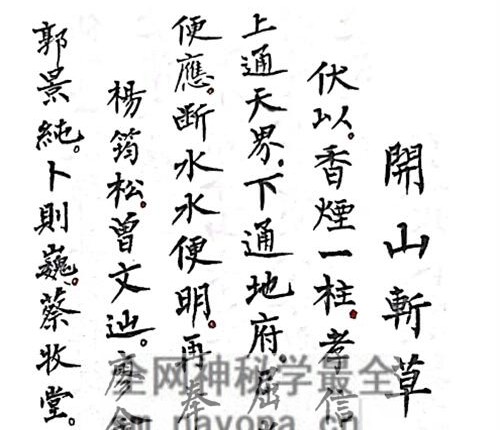 開山斬草
伏以。香煙一柱。孝信
上通天界。下通地府。屈
便應。断水水便明。再奉
楊筠松。曾文辿。廖
郭景純。卜則巍。蔡牧堂。
全网神秘学最全